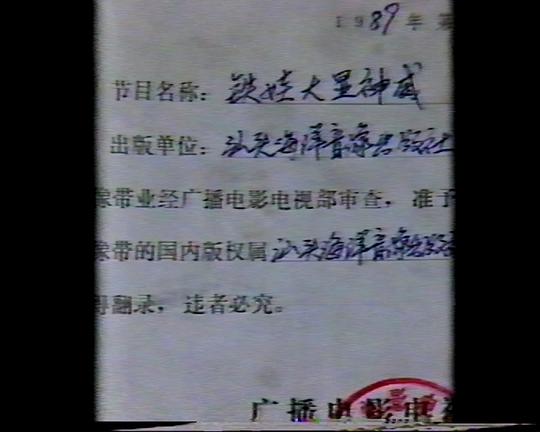 1989年第
节目名称：铁娃大显神威
出版单位：汕头海洋音像出版社
像带业经广播电影电视部审查，准予
像带的国内版权属汕头海洋音像出版
得翻录，违者必究。
广播电影电视